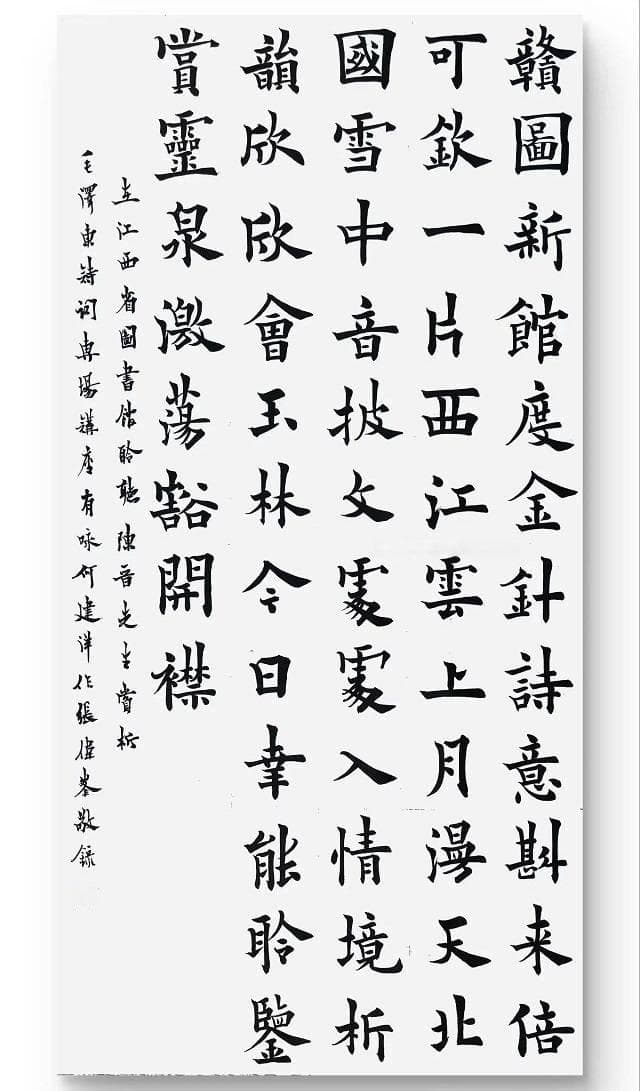 贛圖新館度金針詩意斟来倍
可欽一片西江雲上月漫天北
國雪中音披文處處入情境析
韻欣欣會玉林今日幸能聆鑒
賞靈泉激蕩豁開襟
在江西省圖書館聆聽陳晋先生賞析
毛澤東詩詞專場講座有咏何建洋作張偉峯敬録